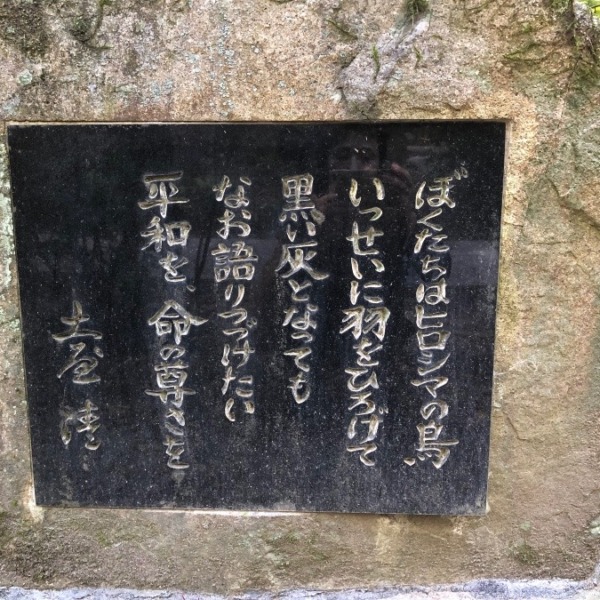 ぼくたちはヒロシマの鳥
いっせいに羽をひろげて
黒い灰となっても
なお語りつづけたい
平和を、命の尊さを
土屋清